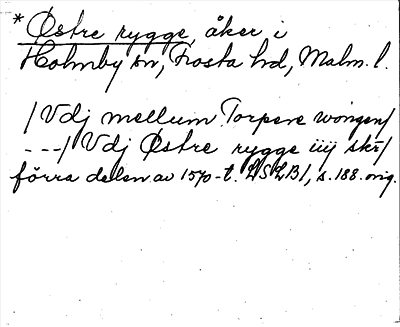 * Östre rygge, åker i
Holmby sn, Frosta hd, Malm. l.
/Vdj mellum Torpere wongen/
---/Vdj Östre rygge iiij sk̄/
förra delen av 1570-t. LSLB/, s. 188. orig.